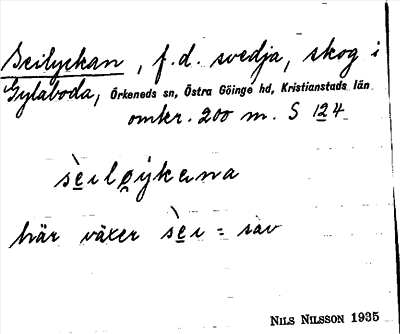 Seilyckan, f.d. svedja, skog i
Gylaboda, Örkeneds sn, Östra Göinge hd, Kristianstads län
omkr. 200 m. S 124
sèilǫýkɐna
här växer sèi = säv
NILS NILSSON 1935